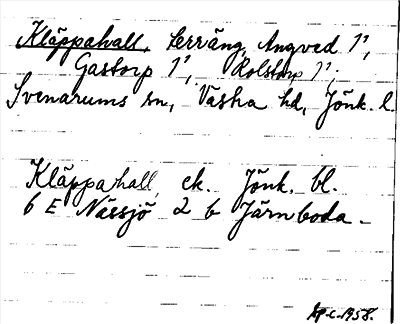 Kläppahall, terräng, Angved 1²,
Gastorp 1², Rolstorp 1².
Svenarums sn, Västra hd, Jönk. l.
Kläppahall, ek. Jönk. bl.
6 E Nässjö 2 b Järnboda
1958.